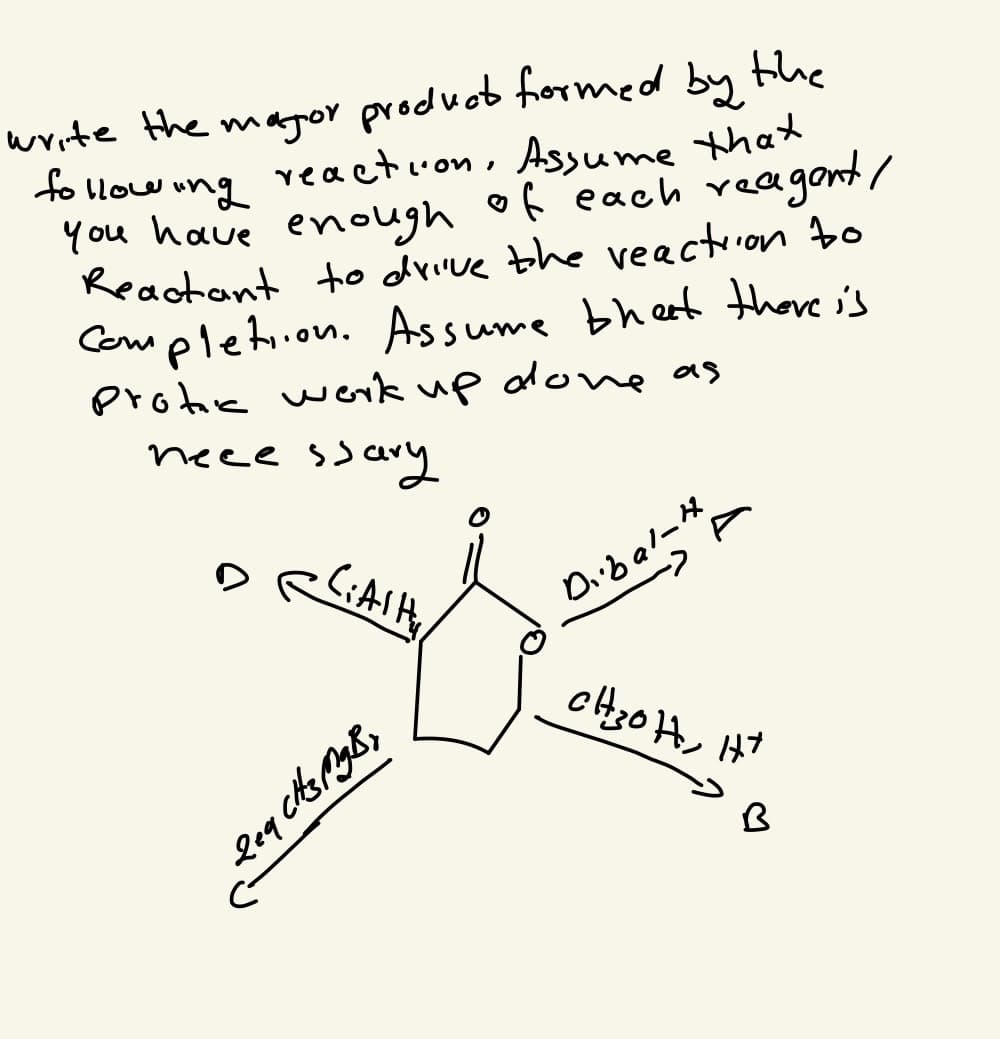 write the major product formed by the
following reaction. Assume that
you have enough of each reagent/
Reactant to drive the reaction to
completion. Assume that there is
protic work up done as
necessary
O
Dibal-H A
D LiAlH4
O
CH3OH, H+
B
2eq CH3MgBr
C